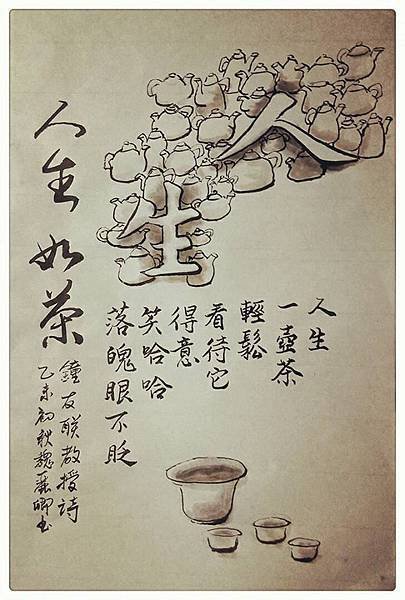 人生
人生
一壺茶
輕鬆
看待它
得意
笑哈哈
落魄眼不眨
人生如茶
鐘友联教授詩
乙未初秋魏麗卿书